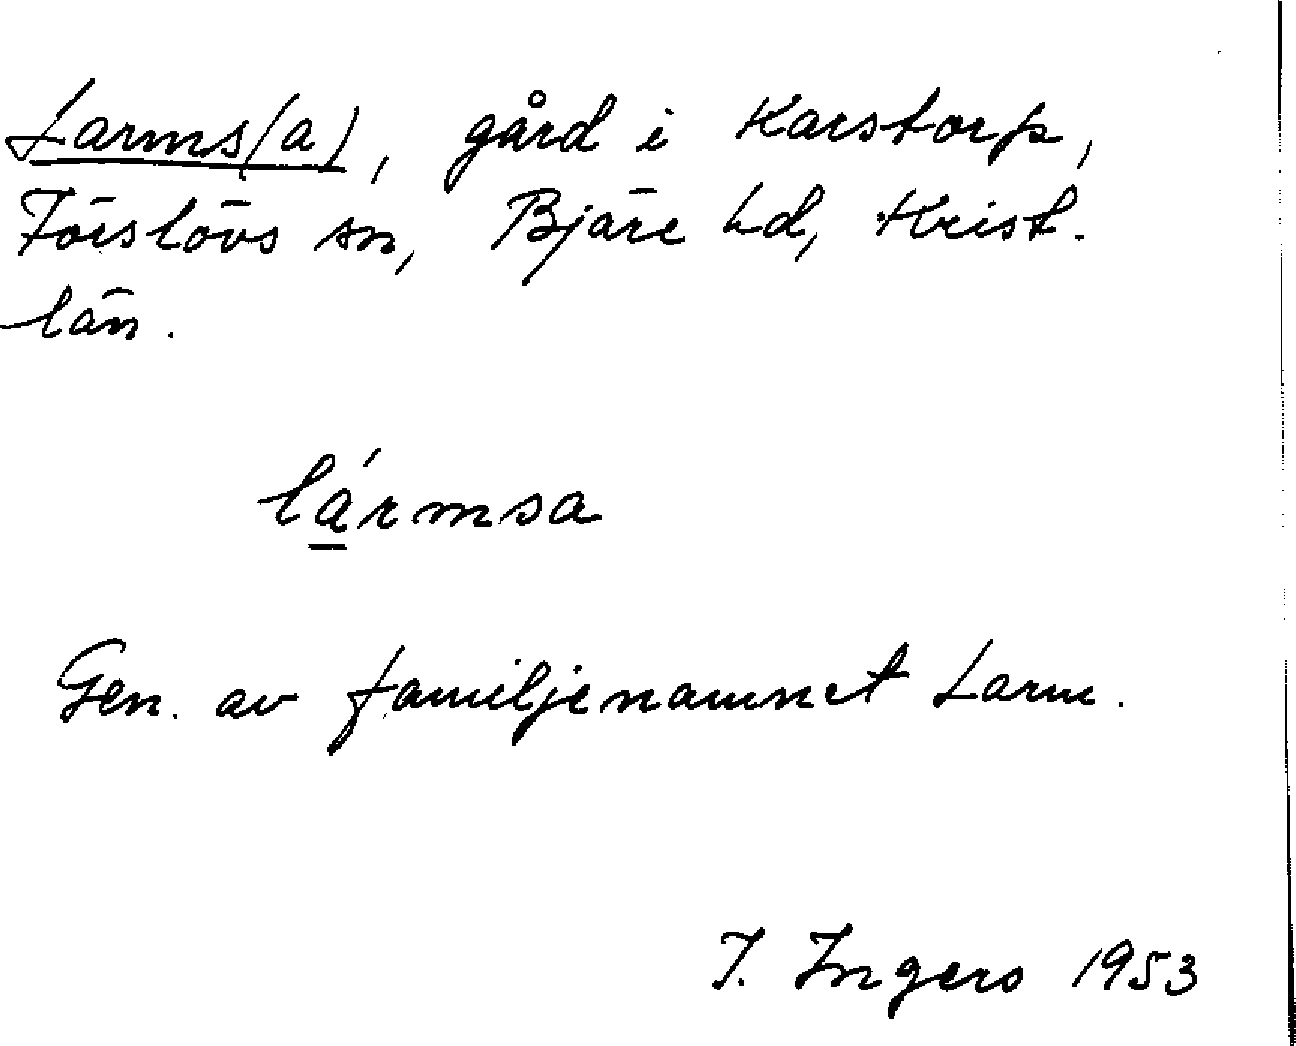 Larms(a), gård i Karstorp,
Förslövs sn, Bjäre hd, Krist.
län.
lármsa
Gen. av familjenamnet Larm.
I. Ingers 1953